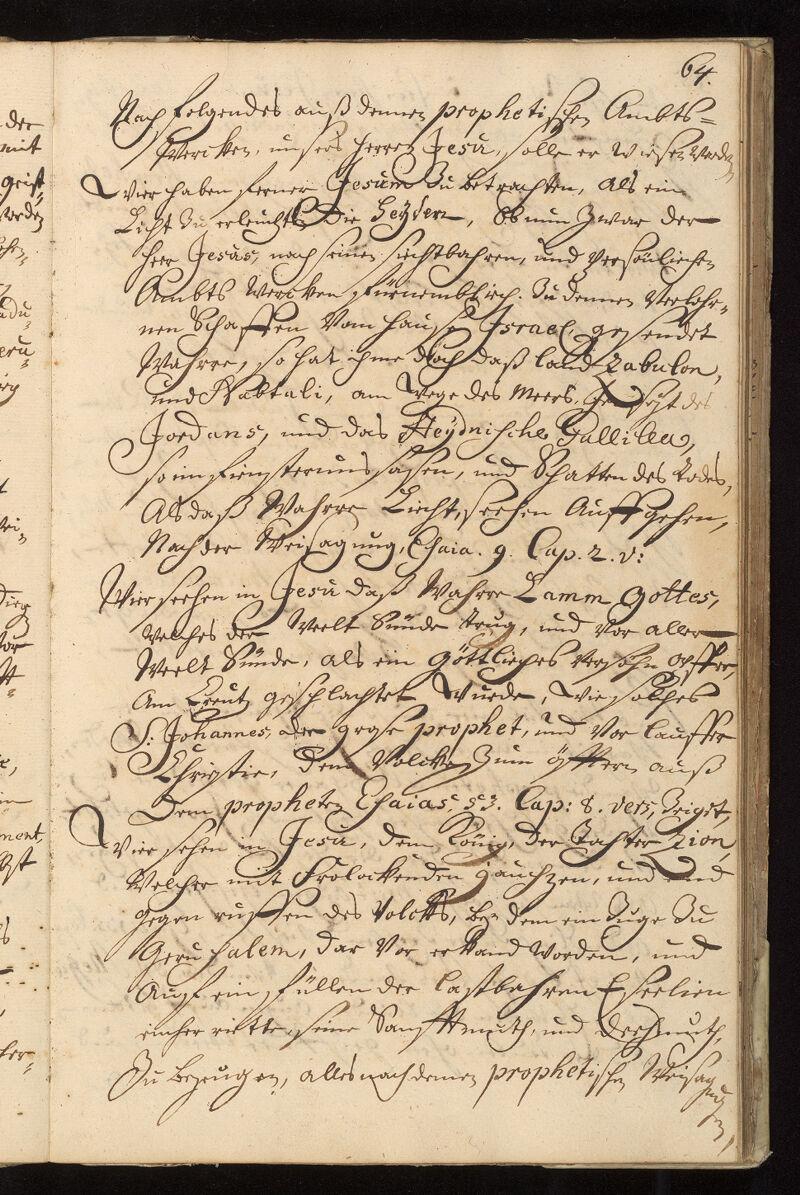 64.
Nachfolgendes auß dennen prophetischen Ambts=
Wercken, unsers Herren Jesu, solle er wiesen werden
Wier haben ferner Jesum Zu betrachten, als ein
Licht Zu erleuchten Die Heyden, Ob nun Zwar der
Herr Jesus, nach seinen siechtbahren, und Persönlichen
Ambts Wercken fürnemblich. Zu dennen Verlohr=
nen Schaffen Vom hause Israel gesendet
Wahre, so hat ihme doch daß land Zabulon,
und Nabtali, am Wege des Meers, des
Jordans, und das Heydnische Gallilea,
so im Fiensternus sasen, und Schatten des Todes,
Als daß Wahre Liecht, seehen Auffgehen,
Nach der Weisagung, Esaia. 9. Cap. 2. v:
Wier seehen in Jesu daß Wahre Lamm Gottes,
Welches der Welt Sünde trug, und Vor aller
Welt Sünde, als ein Göttliches Versöhn opffer,
Am Creutz geschlachtet Wurde, Wie solches
S: Johannes, der grose prophet, und Vor lauffer
Christie, dem Volcke, Zum öfftern auß
Dem propheten Esaias 53. Cap: 8. vers, Zeiget,
Wier sehen in Jesu, dem König, der Tochter Zion,
Welcher mit Frolockenden Jauchzen, und
gegen ruffen des Volcks, bey dem ein Zuge Zu
Jerusalem, dar Vor erkand Worden, und
Auff ein füllen der lastbahren Eseelien
einher riette, seine Sanfftmuth, und Deehmuth,
Zu bezeugen, alles nach denen prophetischen Weisagungen,
der
mit
geist
worden
ment